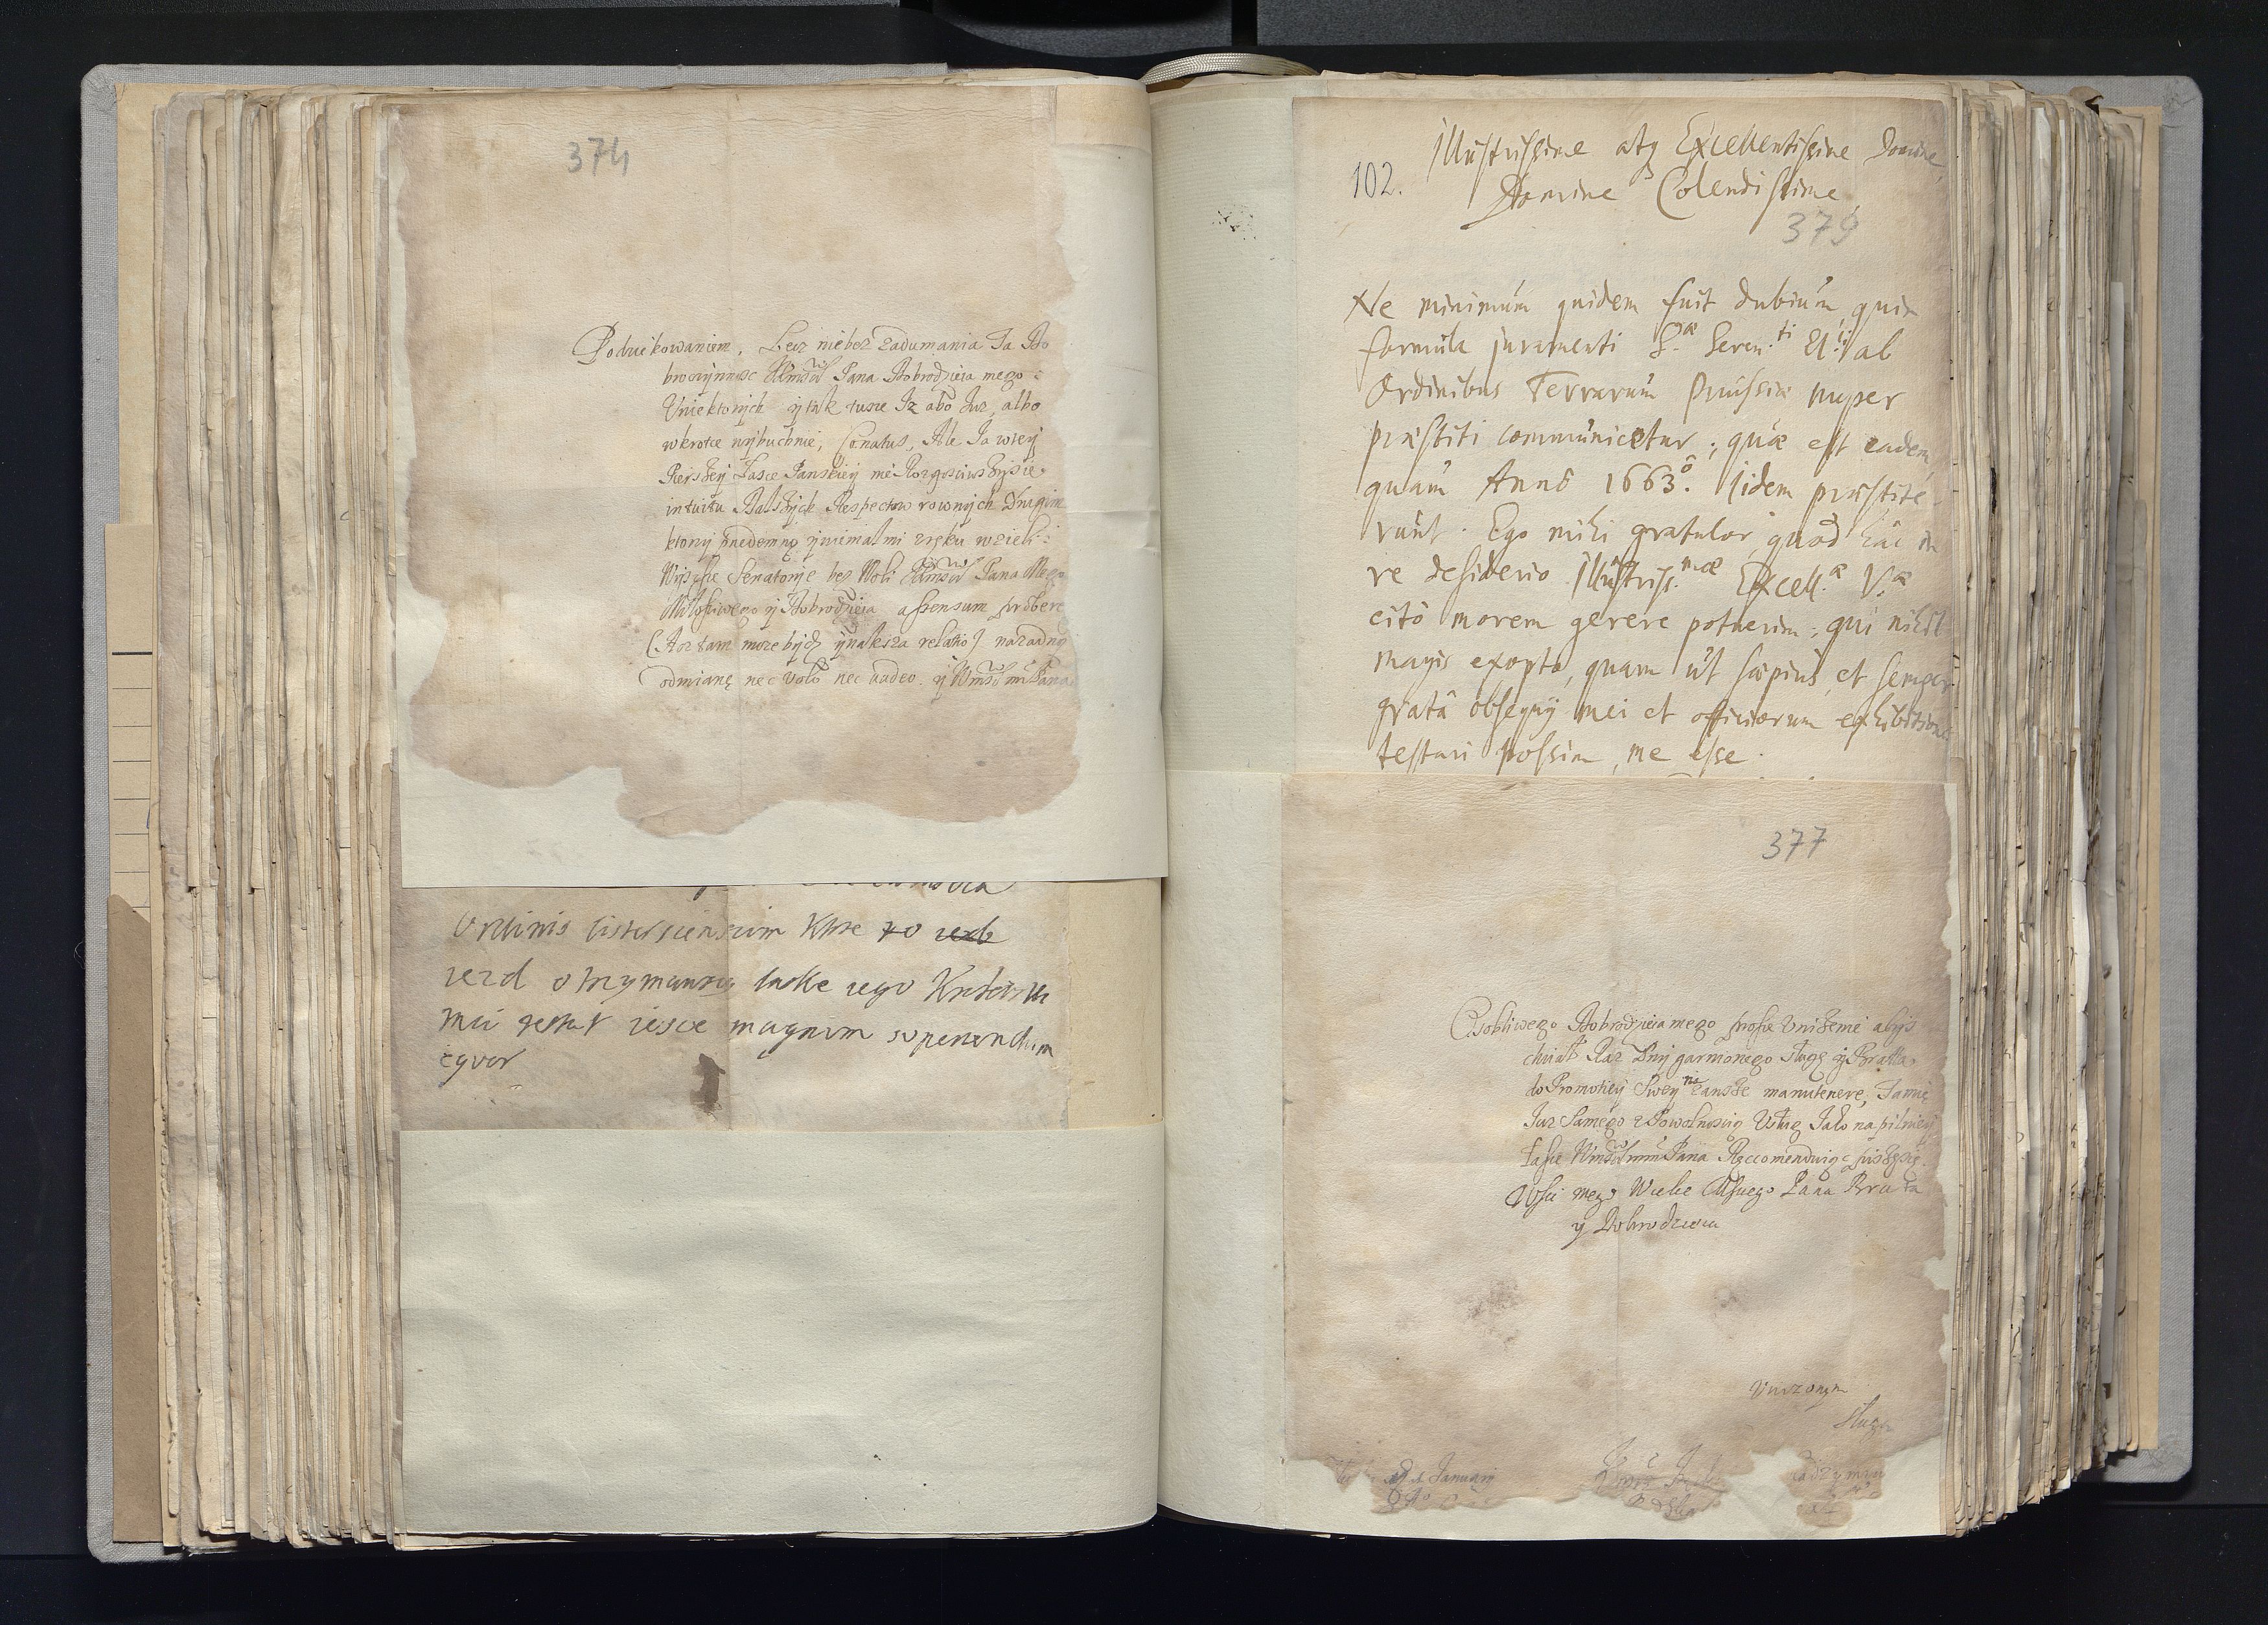 374
Podziękowaniem. Lecz niebez zadumania Ja Do
broczynność Pana Dobrodzieia mego
Uniektorych y tak tuszę Iz abo Juz, albo
wkrotce wybuchnie, conatus, Ale Ja wtey
Pierszey Łasce Panskiey
intuitu Dalszych Respectow rownych Drugim
ktory przedemną y niemal mi zręku wzieli
Wyższe Senatorye bez Woli Pana Mego
Miłościwego y Dobrodzieia assensum prębere
(Acz tam moze bydz ynaksza relatio) nazadną
odmianę nec volo nec audeo. y Pana
Ordinis Cistersiensium Ktore to
iezd otrzymawszy łaske iego
mci iesce magnum superandum
equor
102. Illustrissime atq Excellentissime Domine,
Domine Colendissime
379
Ne minimúm quidem fuit dubiúm, quin
formúla juramenti S.æ Seren.ti El.li ab
Ordinibus Terrarúm Prússiæ nuper
præstiti communicetur; quæ est eadem,
quám Annô 1663.ô iidem præstite-
rúnt. Ego mihi gratulor, quòd hâc in
re desiderio Illústriss.mæ Excell.æ V.æ
citò morem gerere potuerim; qui nihil
magis exopto, quam út sæpiús, et semper
gratâ obseqúÿ mei et officiorum exhibitione
testari possim, me esse.
377
Osobliwego Dobrodzieia mego proszę Unizenie abys
chciał Raz Przygarnionego sługę y Brata
do Promotiey Swey nie zansze manutenere, Ja mię
Juz Samego z Powolnoscią Usług Jako napilniey
łasce Pana Reccomenduiąc piszę się.
mego Wielce Pana Brata
y Dobrodzieia
Unizonym
sługą
Januarij